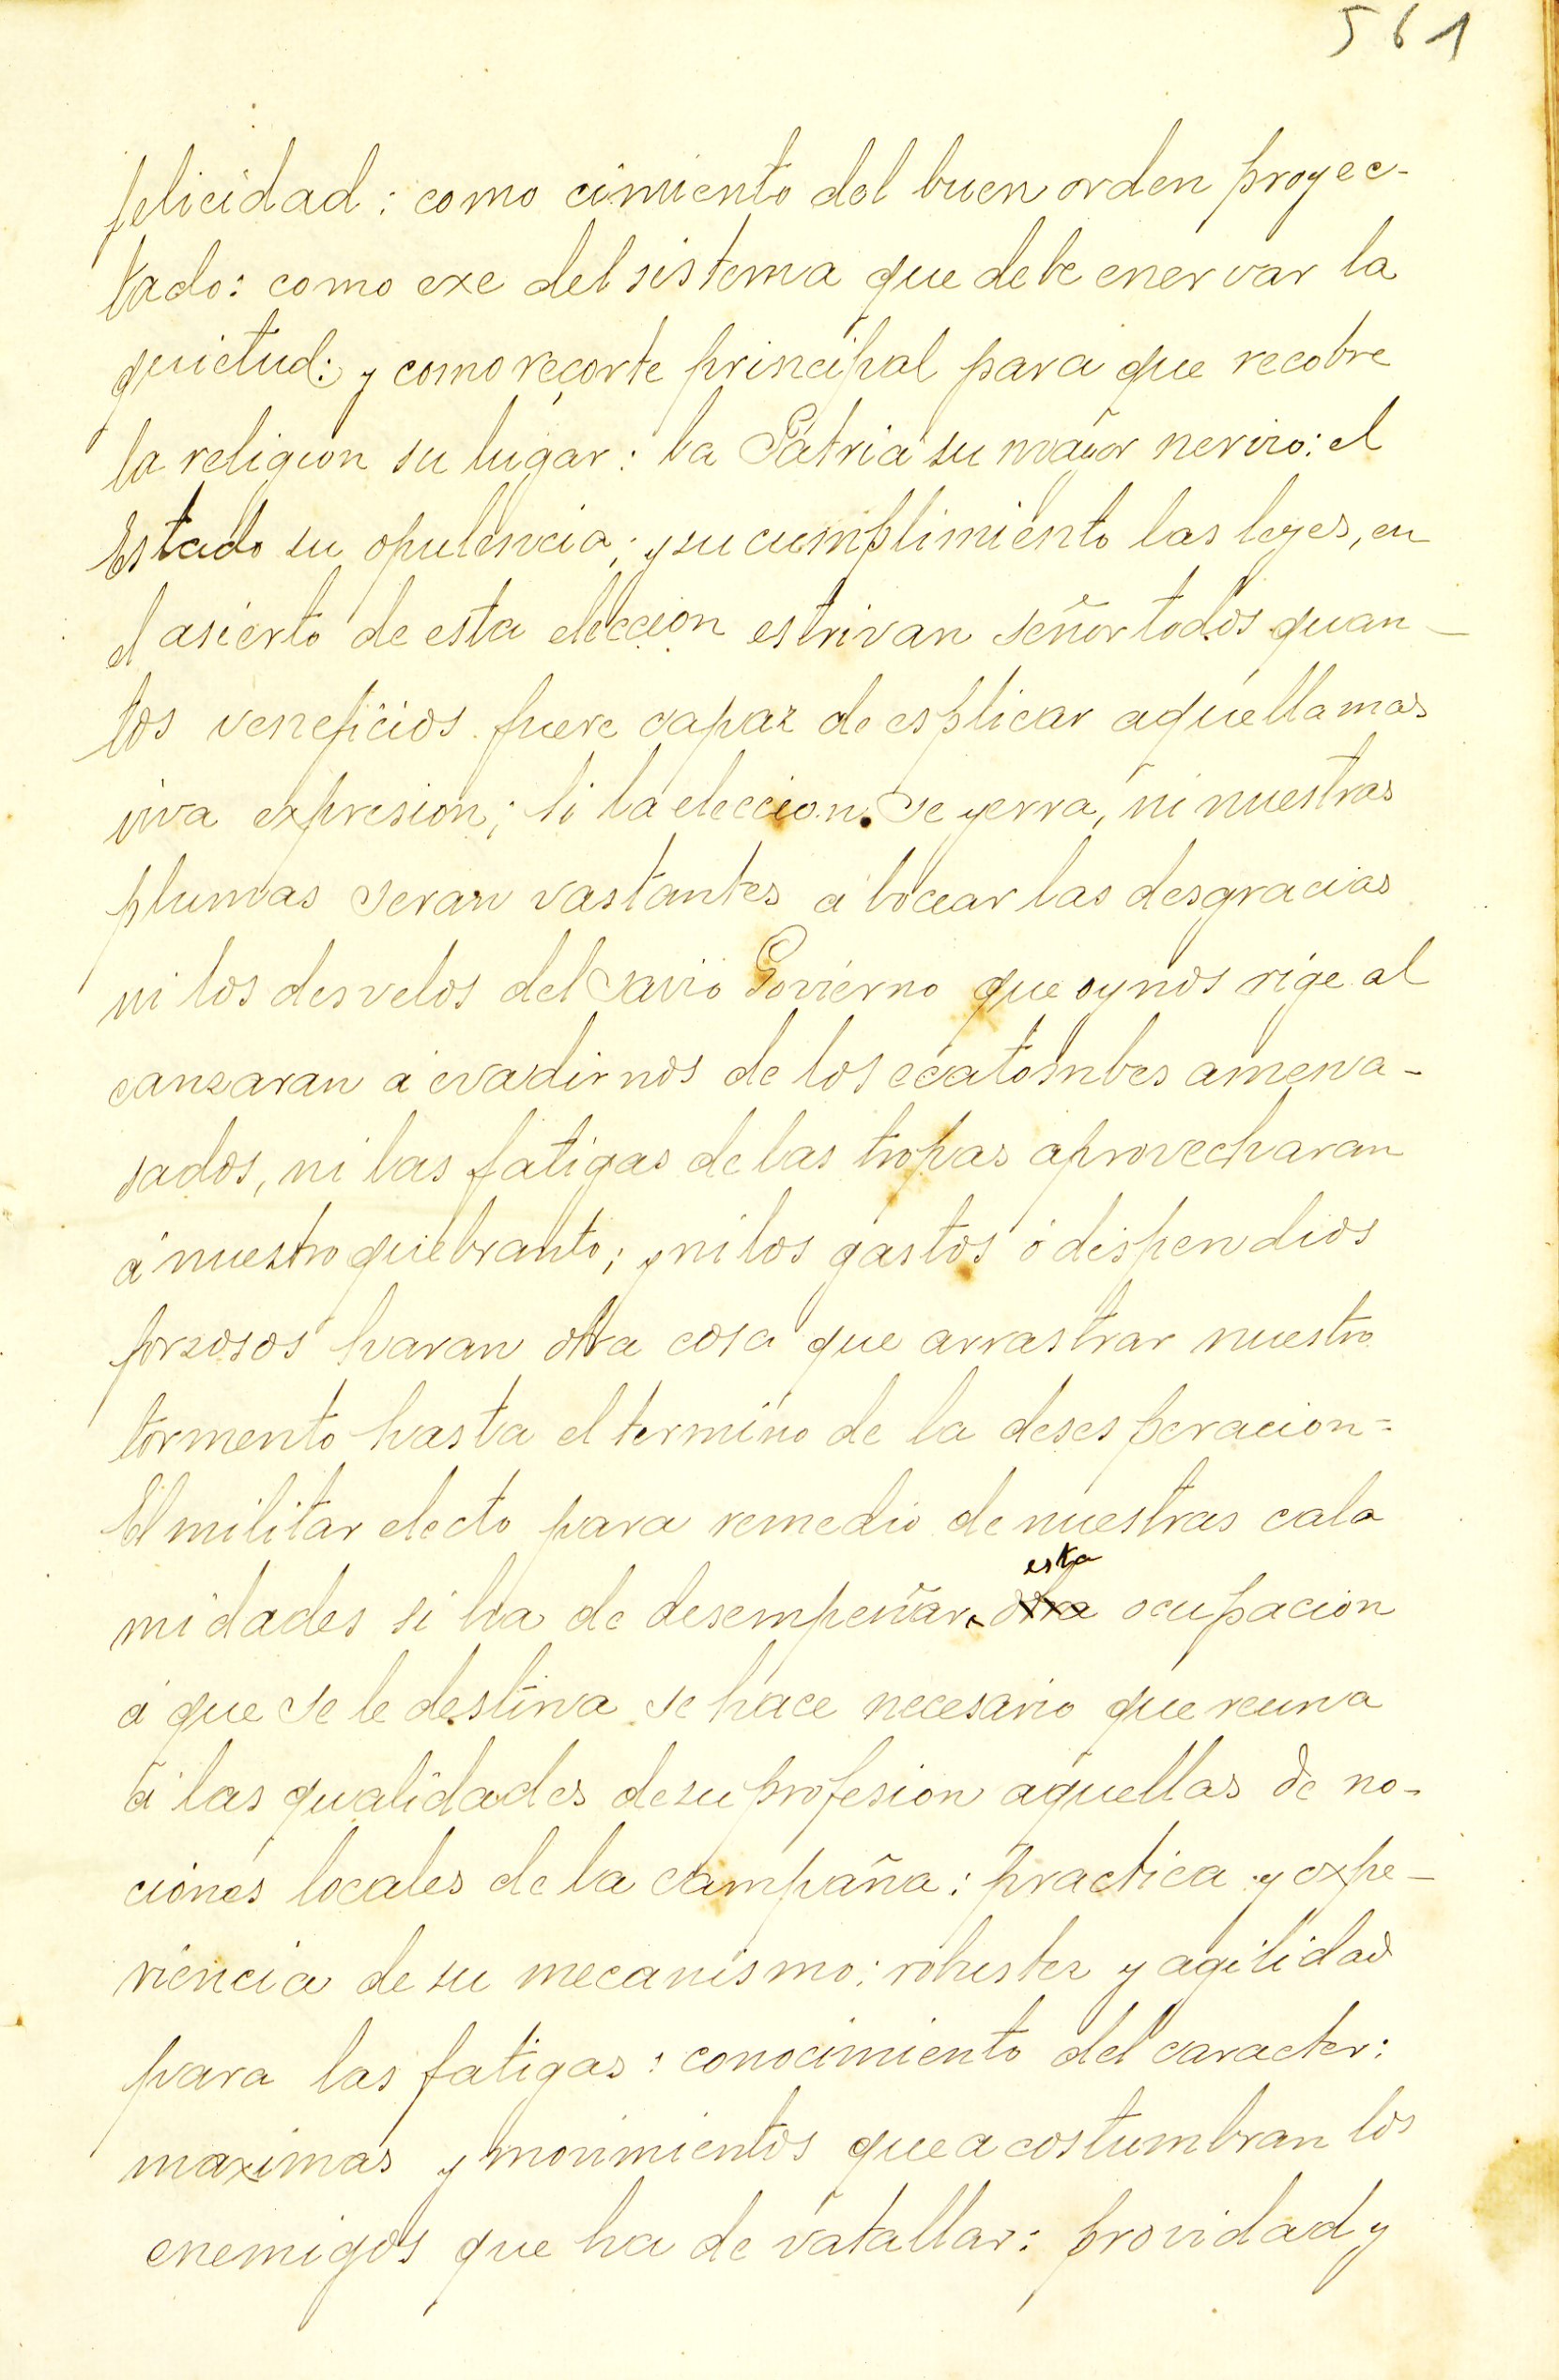 561
felicidad: como cimiento del buen orden proyec-
tado: como exe del sistema que debe enervar la
quietud: y como reçorte principal para que recobre
la religion su lugar: la Patria su mayor nervio: el
Estado su opulencia; y su cumplimiento las leyes, en
el asierto de esta eleccion estrivan señor todos quan-
tos veneficios fuere capaz de esplicar aquella mas
viva expresion; si la eleccion se yerra, ni nuestras
plumas seran vastantes a bocear las desgracias
ni los desvelos del Savio Govierno que oy nos rige al
canzaran á evadirnos de los ecatombes amena-
sados, ni las fatigas de las tropas aprovecharan
á nuestro quebranto; y ni los gastos ó dispendios
forzosos haran otra cosa que arrastrar nuestro
tormento hasta el termino de la desesperacion=
El militar electo para remedio de nuestras cala
midades si ha de desempeñar esta otra ocupacion
á que se le destina se hace necesario que reuna
á las qualidades de su profesion aquellas de no-
ciones locales de la campaña: practica y expe-
riencia de su mecanismo: robustez y agilidad
para las fatigas: conocimiento del caracter:
maximas y movimientos que acostumbran los
enemigos que ha de vatallar: providad y